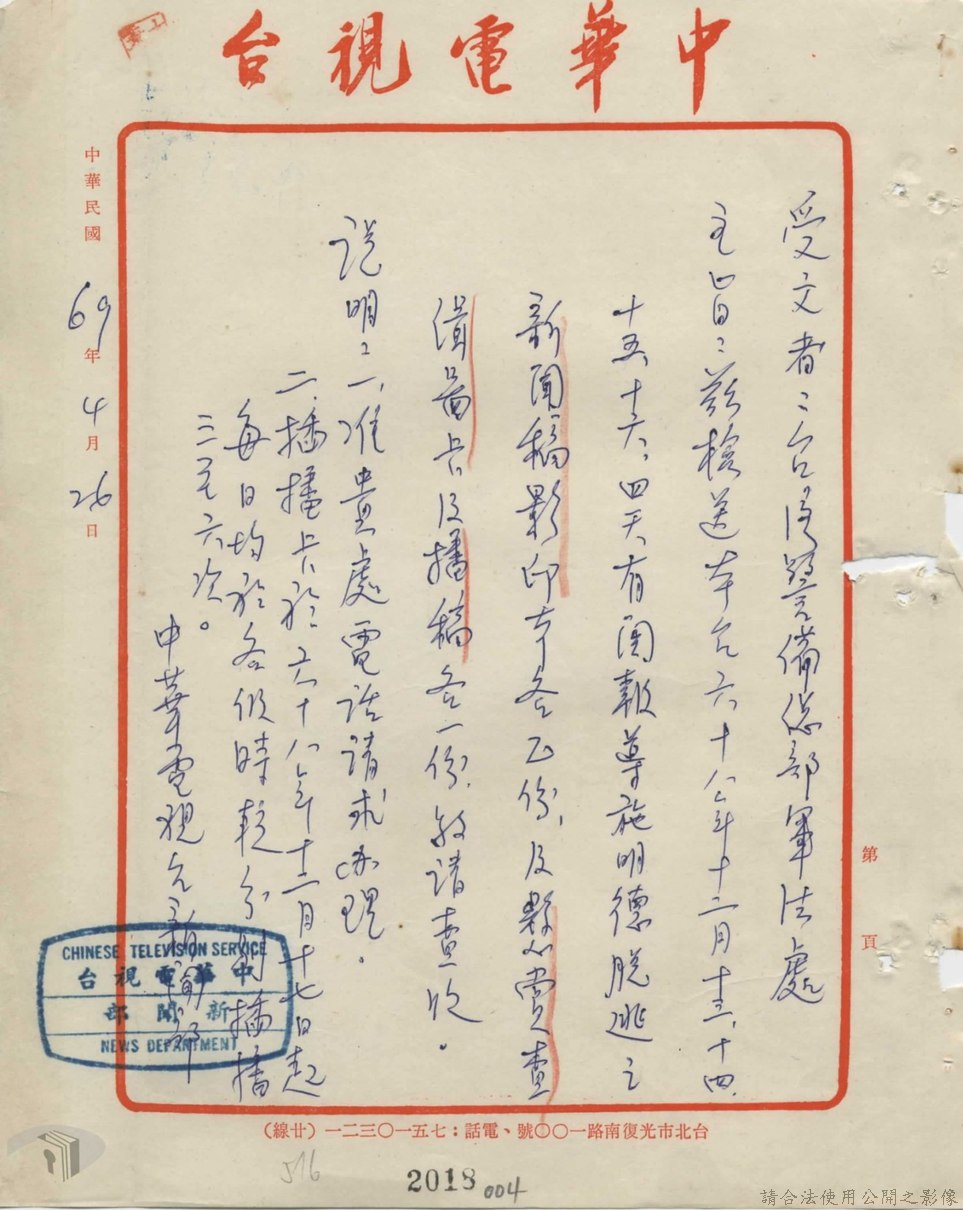 中華電視台
受文者：台湾警備总部軍法處
主旨：茲檢送本台六十八年十二月十三、十四、
十五、十六、四天有関報導施明德脱逃之
新聞稿影印本各乙份，及懸賞查
缉圖卡及播稿各一份，敬請查收。
說明：一、准貴處電話請求办理。
二、播卡於六十八年十二月十七日起
每日均於各個時段分別播
三至六次。
中華電視台新聞部
中華民國69年4月26日
CHINESE TELEVISION SERVICE
中華電視台
新聞部
NEWS DEPARTMENT
第 頁
台北市光復南路一〇〇號、電話：七五一〇三二一（廿線）
516
2018 004
請合法使用公開之影像